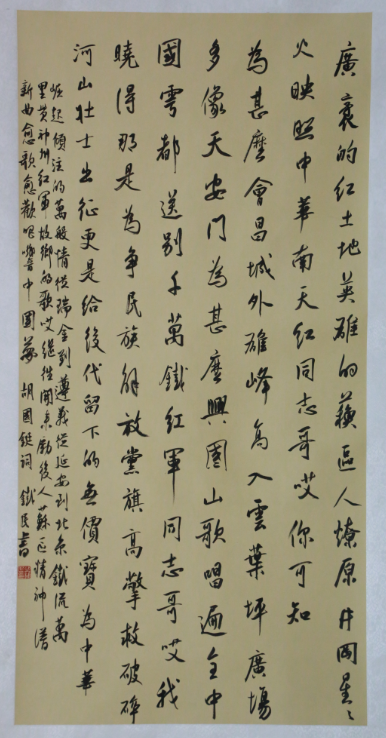 廣袤的紅土地英雄的蘇區人燎原井岡星星
火映照中華南天紅同志哥哎你可知
為甚麼會昌城外雄峰高入雲葉坪廣場
多像天安門為甚麼興國山歌唱遍全中
國雩都送別千萬鐵紅軍同志哥哎我
曉得那是為爭民族解放黨旗高擎救破碎
河山壯士出征更是給後代留下的無價寶為中華
崛起傾注的萬般情從瑞金到遵義從延安到北京鐵流萬
里貫神州紅軍故鄉的歌哎繼往開來勵後人蘇區精神譜
新曲愈歌愈歡唱響中國夢 胡國鋌詞 鐵民書